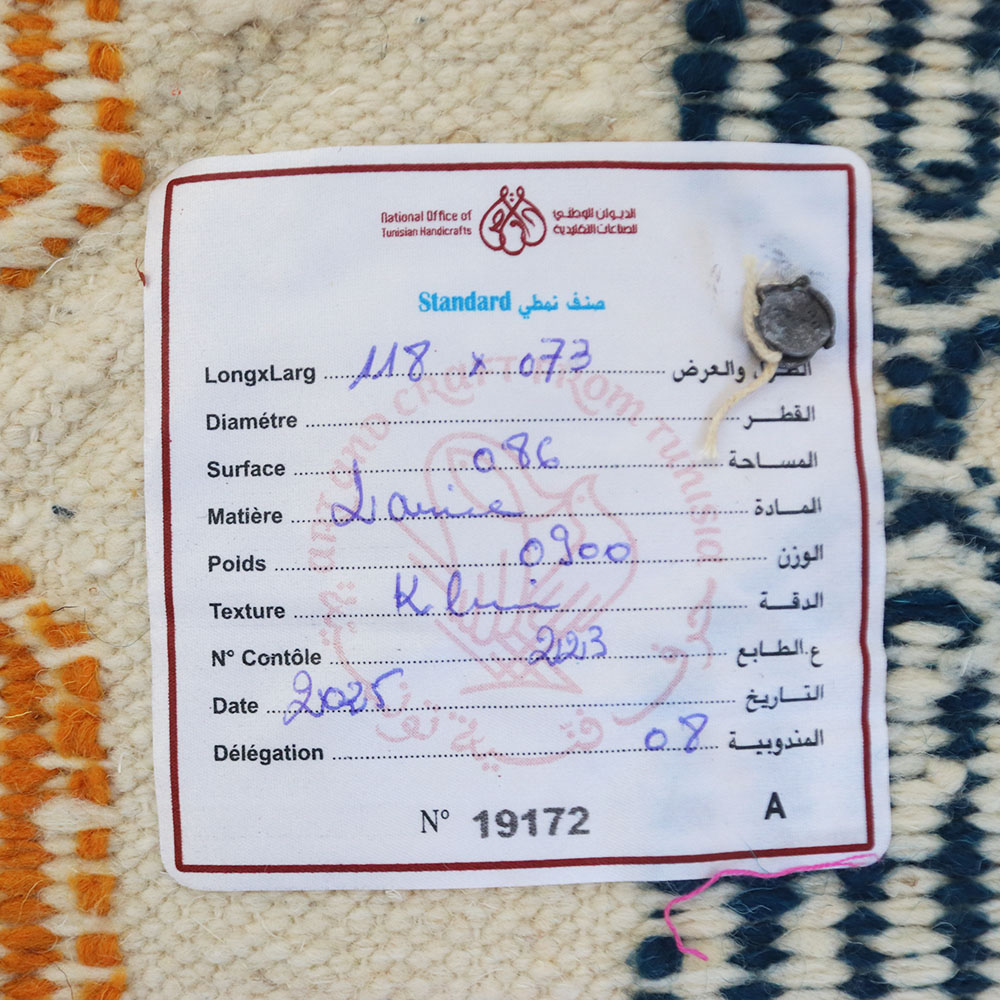 National Office of
Tunisian Handicrafts
الديوان الوطني
للصناعات التقليدية
Standard صنف نمطي
LongxLarg 118 x 073 الطول والعرض
Diamétre القطر
Surface 086 المساحة
Matière Laine المادة
Poids 0900 الوزن
Texture Klim الدقة
N° Contôle 223 ع.الطابع
Date 2025 التاريخ
Délégation 08 المندوبية
N° 19172 A
ART AND CRAFT FROM TUNISIA